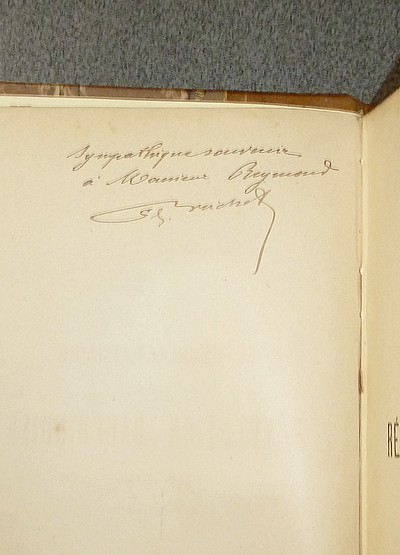 Sympathique souvenir
à Monsieur Reymond
RÉ